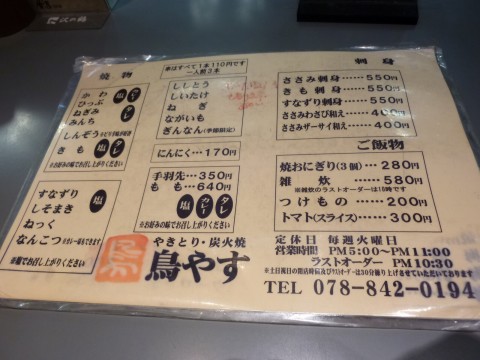 焼物
かわ
ひっぷ
ねぎみ
みんち
塩
カレー
タレ
しんぞう
きも
塩
タレ
※お好みの味でお召し上がりください
すなずり
しそまき
ねっく
なんこつ
塩
※塩でお召し上がりください
串はすべて1本110円です
一人前2本
ししとう
しいたけ
ねぎ
ながいも
ぎんなん(季節限定)
にんにく…170円
手羽先…350円
もも…640円
塩
カレー
タレ
※お好みの味でお召し上がりください
やきとり・炭火焼
鳥やす
刺身
ささみ刺身……550円
きも刺身……550円
すなずり刺身……550円
ささみわさび和え…400円
ささみザーサイ和え…400円
ご飯物
焼おにぎり(3個)…280円
雑炊……580円
※雑炊のラストオーダーは10時です
つけもの……200円
トマト(スライス)……300円
定休日 毎週火曜日
営業時間 PM5:00〜PM11:00
ラストオーダー PM10:30
※土日祝日の開店時間及びラストオーダーは30分繰り上げさせていただいております
TEL 078-842-0194